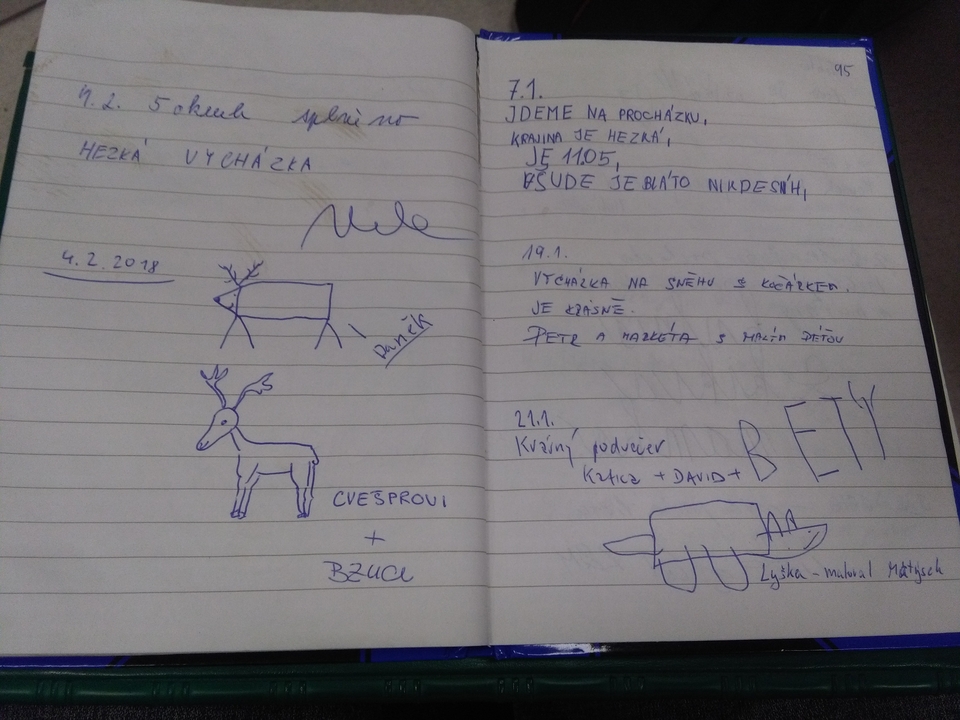 4.2. 5 okruh splněno
HEZKÁ VYCHÁZKA
4.2.2018
Daněk
CVEŠPROVI
+
BZUCI
95
7.1.
JDEME NA PROCHÁZKU,
KRAJINA JE HEZKÁ,
JE 11.05,
VŠUDE JE BLÁTO NIKDE SNÍH,
19.1.
VYCHÁZKA NA SNĚHU S KOČÁRKEM.
JE KRÁSNĚ.
PETR A MARKÉTA S MALÝM DÍTĚTEM
21.1.
Krásný podvečer
Katka + DAVID + BETY
Lyška - maloval Matýsek